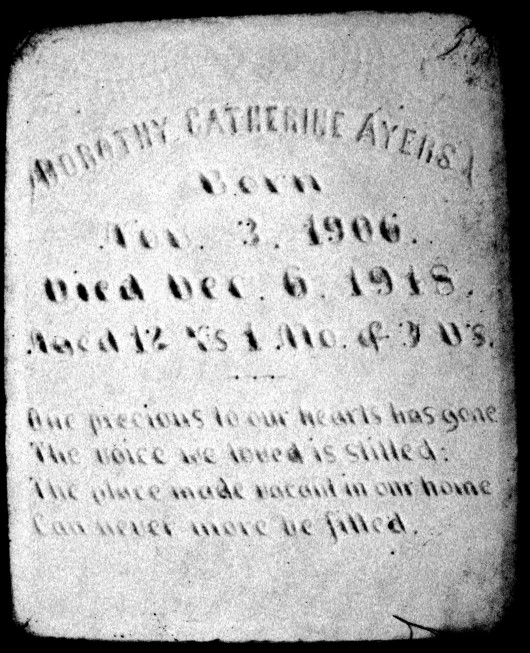 DOROTHY CATHERINE AYERS
Born
Nov. 3. 1906.
Died Dec. 6. 1918.
Aged 12 Ys 1 Mo. & 3 Ds.
One precious to our hearts has gone
The voice we loved is stilled:
The place made vacant in our home
Can never more be filled.